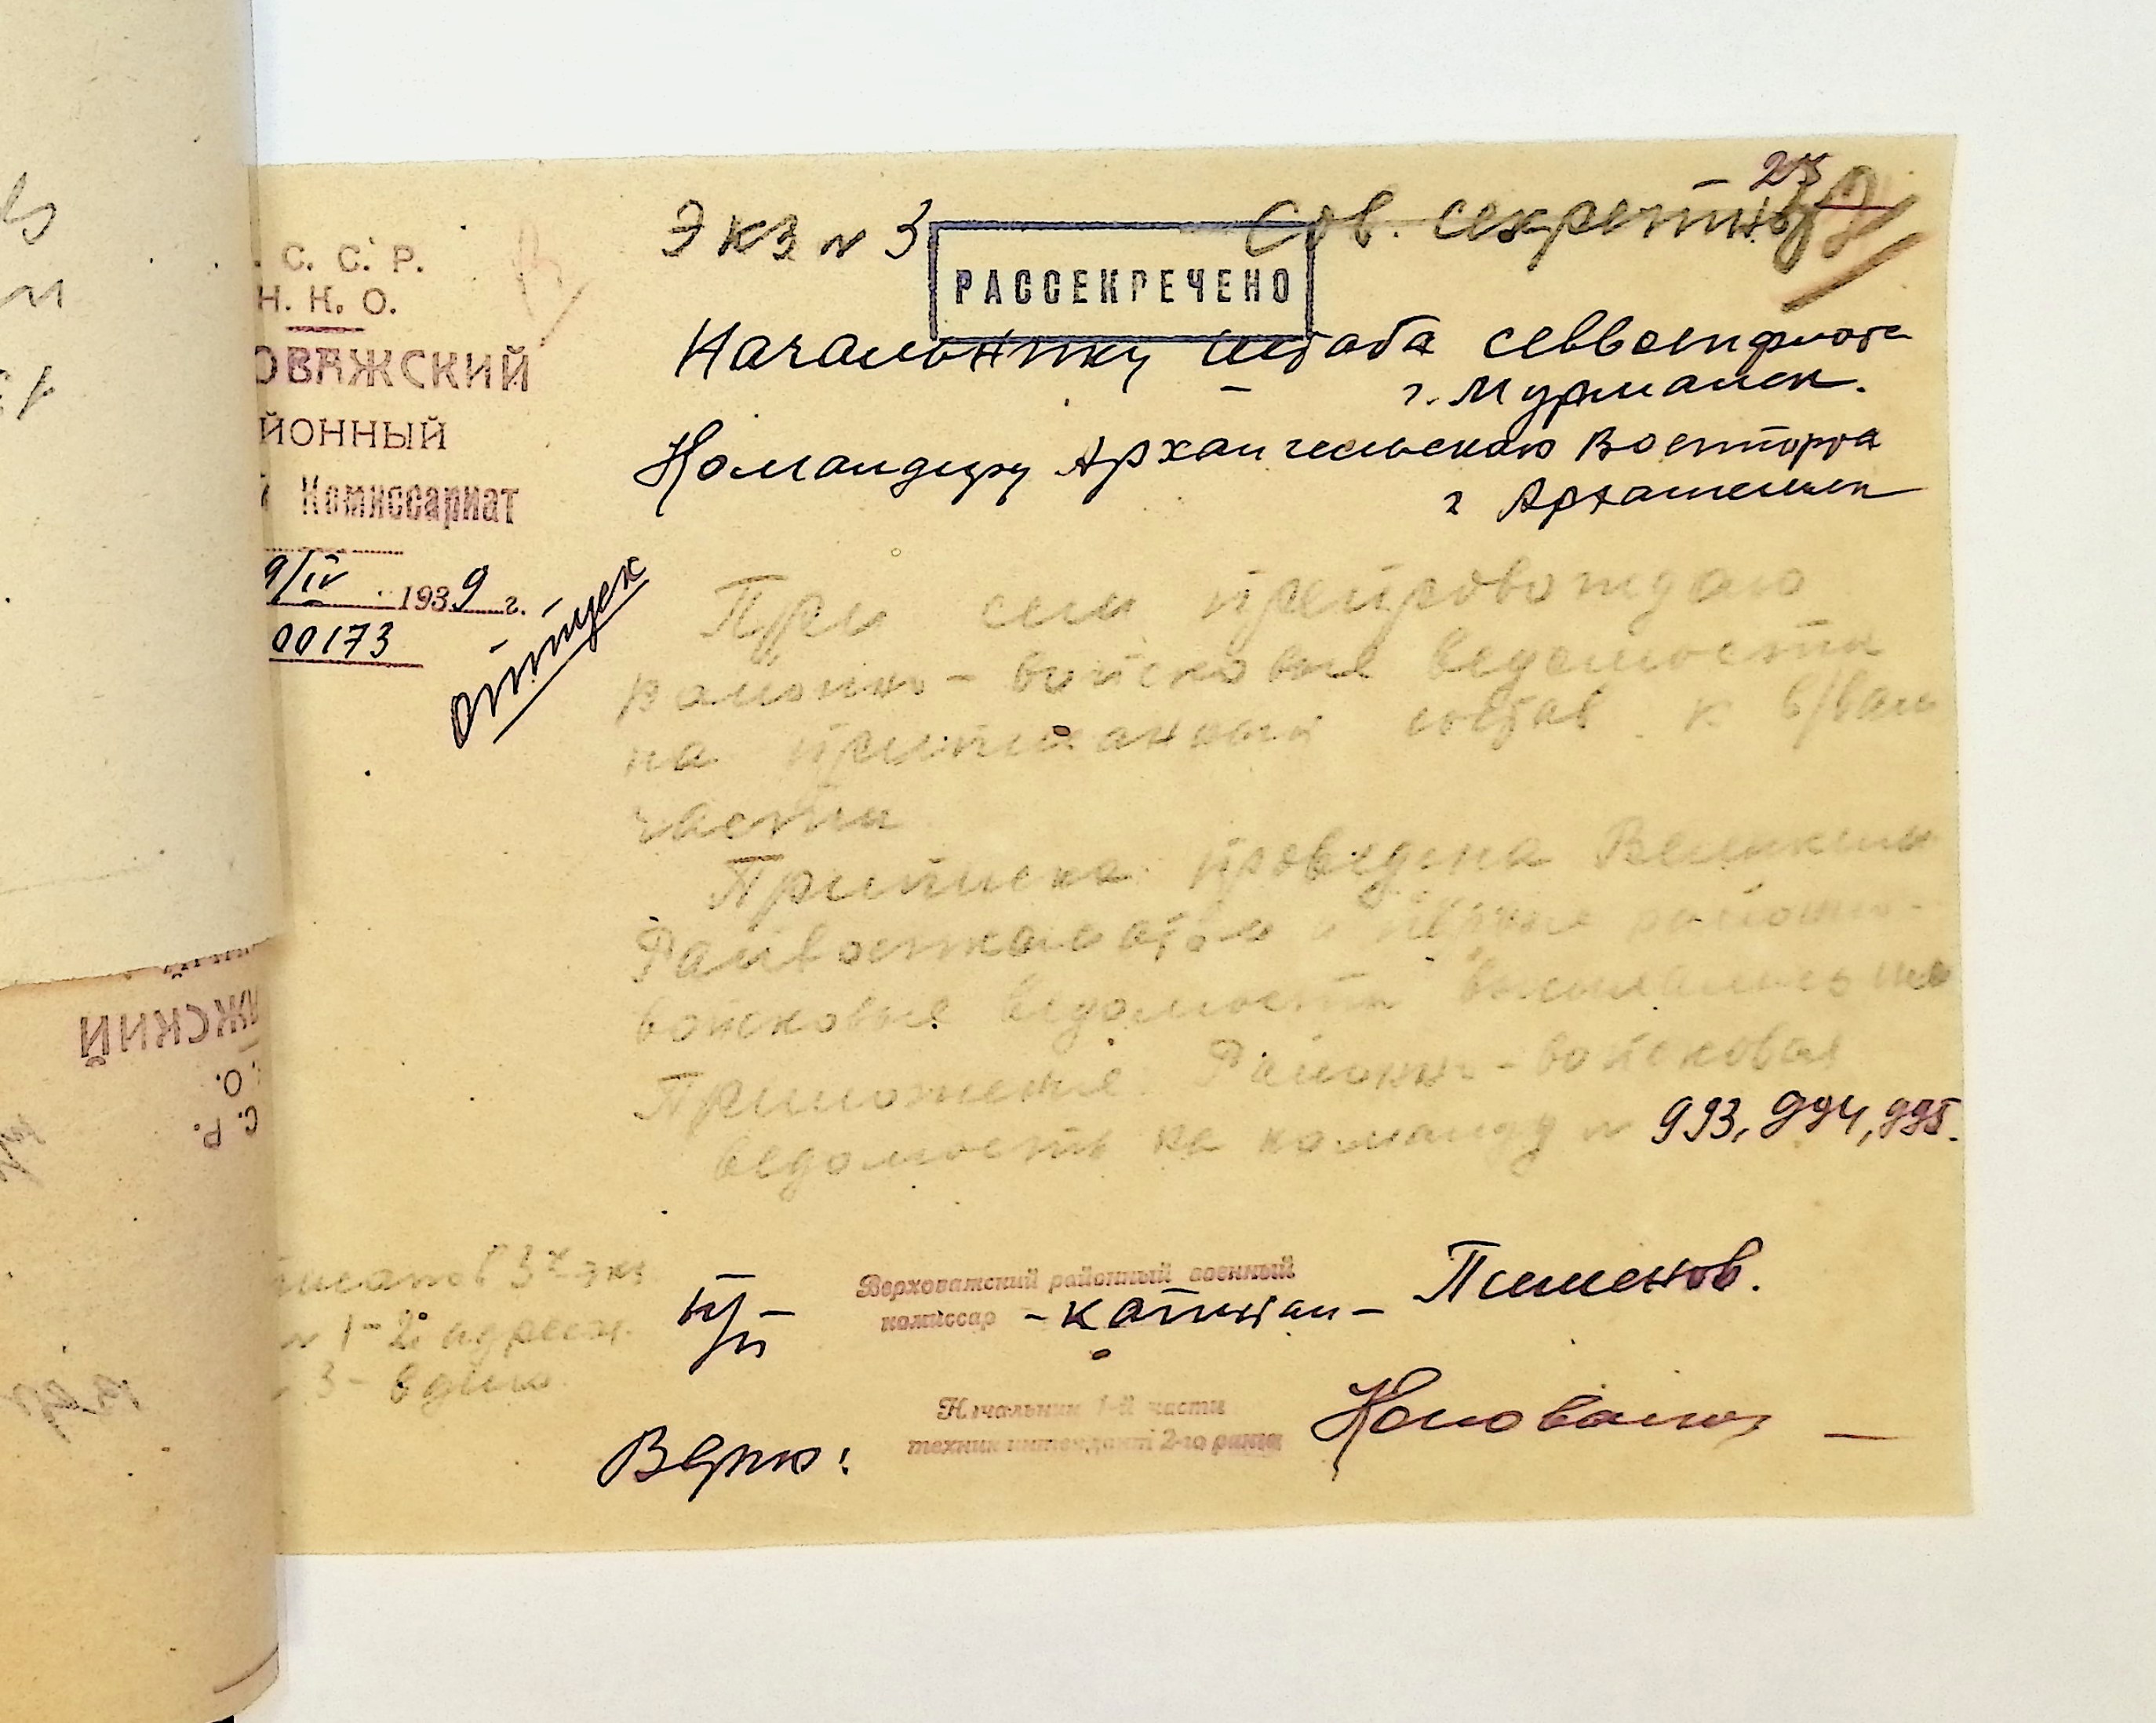 Экз № 3
Сов. секретно
23
РАССЕКРЕЧЕНО
С. С. Р.
Н. К. О.
ОВАЖСКИЙ
ЙОННЫЙ
Й Комиссариат
9/IV 1939 г.
00173
отпуск
Начальнику штаба севвоенфлота
г. Мурманск.
Командиру Архангельского Военпорта
г Архангельск
При сем препровождаю
районно-войсковые ведомости
на приписанный состав к в/вам
части
Приписка проведена Вельским
Райвоенкоматом и первые районно-
войсковые ведомости высылались им
Приложение: Районно-войсковая
ведомость на команду № 993, 994, 995.
3х экз
№ 1-2 адресат.
3- в дело.
п/п
Верховажский районный военный
комиссар - капитан - Пименов.
Начальник 1-й части
техник интендант 2-го ранга
Верно:
ЖСКИЙ
О.
С. Р.